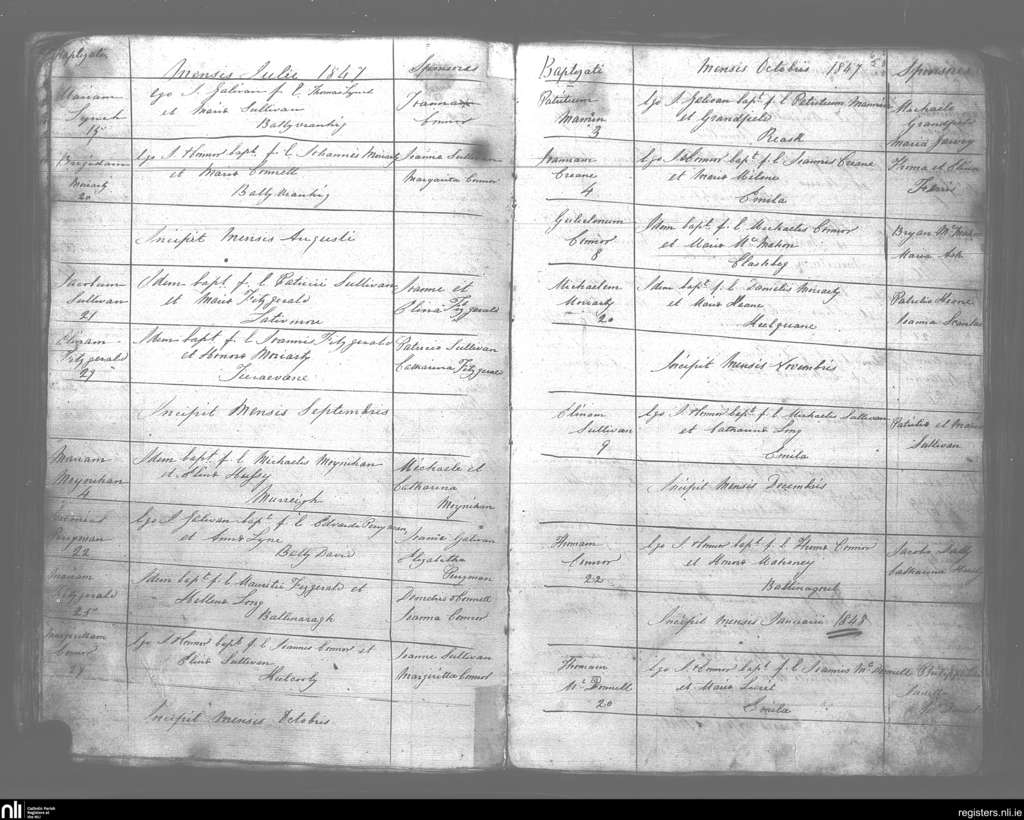 Baptizati
Mensis Julii 1847
Sponsores
Mariam
Lynch
15
Ego J. Galivan f. l. Thomae Lynch
et Maria Sullivan
Ballyrankig
Joanna
Connor
Brigidam
Moriarty
20
Ego J. O Connor bapt. f. l. Johannis Moriarty
et Maria Connell
Ballyrankig
Joanna Sullivan
Margarita Connor
Incipit Mensis Augusti
Jacobum
Sullivan
21
Idem bapt f. l. Patricii Sullivan
et Maria Fitzgerald
Joanne et
Elina Fitzgerald
Elinam
Fitzgerald
29
Idem bapt f. l. Joannis Fitzgerald
et Honora Moriarty
Patricio Sullivan
Catharina Fitzgerald
Incipit Mensis Septembris
Mariam
Moynihan
4
Idem bapt f. l. Michaelis Moynihan
et Elina Hussy
Murreigh
Michaele et
Catharina
Moynihan
Peryman
22
Ego J. Galivan bapt. f. l. Edvardi Peryman
et Anna Lyne
Bally David
Joanne Galivan
Elizabitha
Peryman
Mariam
Fitzgerald
25
Idem bapt. f. l. Mauritii Fitzgerald et
Hellena Long
Ballinaragh
Demetrio O Connell
Joanna Connor
Margaritam
Connor
29
Ego J. O Connor bapt f. l. Joannis Connor et
Elina Sullivan
Joanne Sullivan
Margeritta Connor
Incipit Mensis Octobris
Baptizati
Mensis Octobris 1847
Sponsores
Patritium
Mannin
3
Ego J. Galivan bapt. f. l. Patritium Mannin
et Grandfield
Reask
Michaele
Grandfield
Maria
Joannam
Creane
4
Ego J. O Connor bapt. f. l. Joannis Creane
et Maria Milene
Emila
Thoma et Elina
Gulielmum
Connor
8
Idem bapt. f. l. Michaelis Connor
et Maria Mc Mahon
Clashbeg
Bryan Mc Mahon
Maria Ash
Michaelem
Moriarty
20
Idem bapt. f. l. Danielis Moriarty
et Maria Keane
Patritio Keane
Joanna Scanlan
Incipit Mensis Novembris
Elinam
Sullivan
9
Ego J. O Connor bapt. f. l. Michaelis Sullivan
et Catharina Long
Emila
Patritio et Maria
Sullivan
Incipit Mensis Decembris
Thomam
Connor
22
Ego J. O Connor bapt f. l. Thoma Connor
et Honora Mahoney
Jacobo
Catharina
Incipit Mensis Januarii 1848
Thomam
Mc Donnell
20
Ego J. O Connor bapt. f. l. Joannis Mc Donnell
et Maria
Emila
nli
Catholic Parish
Registers at
the NLI
registers.nli.ie